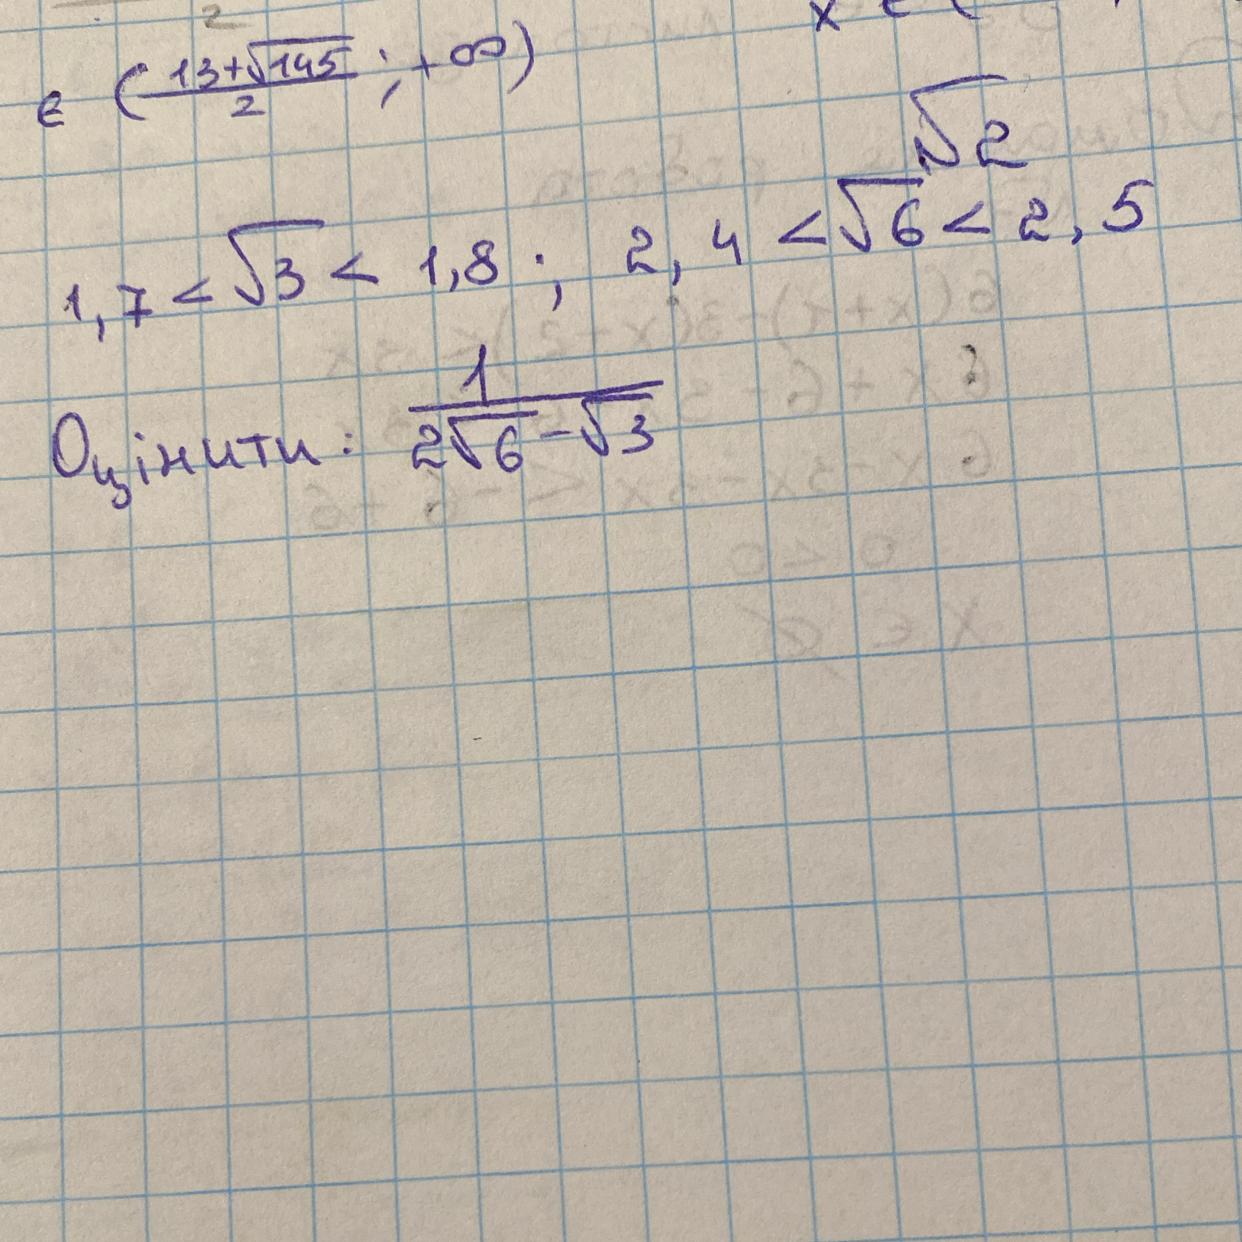 2
x ∈ (
∈ (13+√145/2 ; +∞)
√2
1,7 < √3 < 1,8 ; 2,4 < √6 < 2,5
Оцінити: 1/2√6 - √3